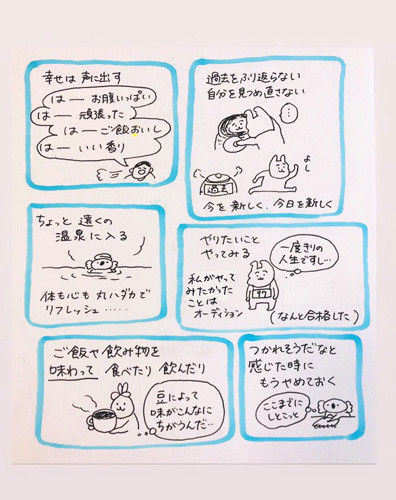 幸せは 声に出す
はーー お腹いっぱい
はーー 頑張った
はーー ご飯おいし
はーー いい香り
過去をふり返らない
自分を見つめ直さない
…
過去
よし
今を新しく、今日を新しく
ちょっと 遠くの
温泉に入る
体も心も 丸ハダカで
リフレッシュ……
やりたいこと
やってみる
一度きりの
人生ですし…
私がやって
みたかった
ことは
オーディション
(なんと合格した)
ご飯や飲み物を
味わって 食べたり 飲んだり
豆によって
味がこんなに
ちがうんだ…
つかれそうだなと
感じた時に
もうやめておく
ここまでに
しとこっと